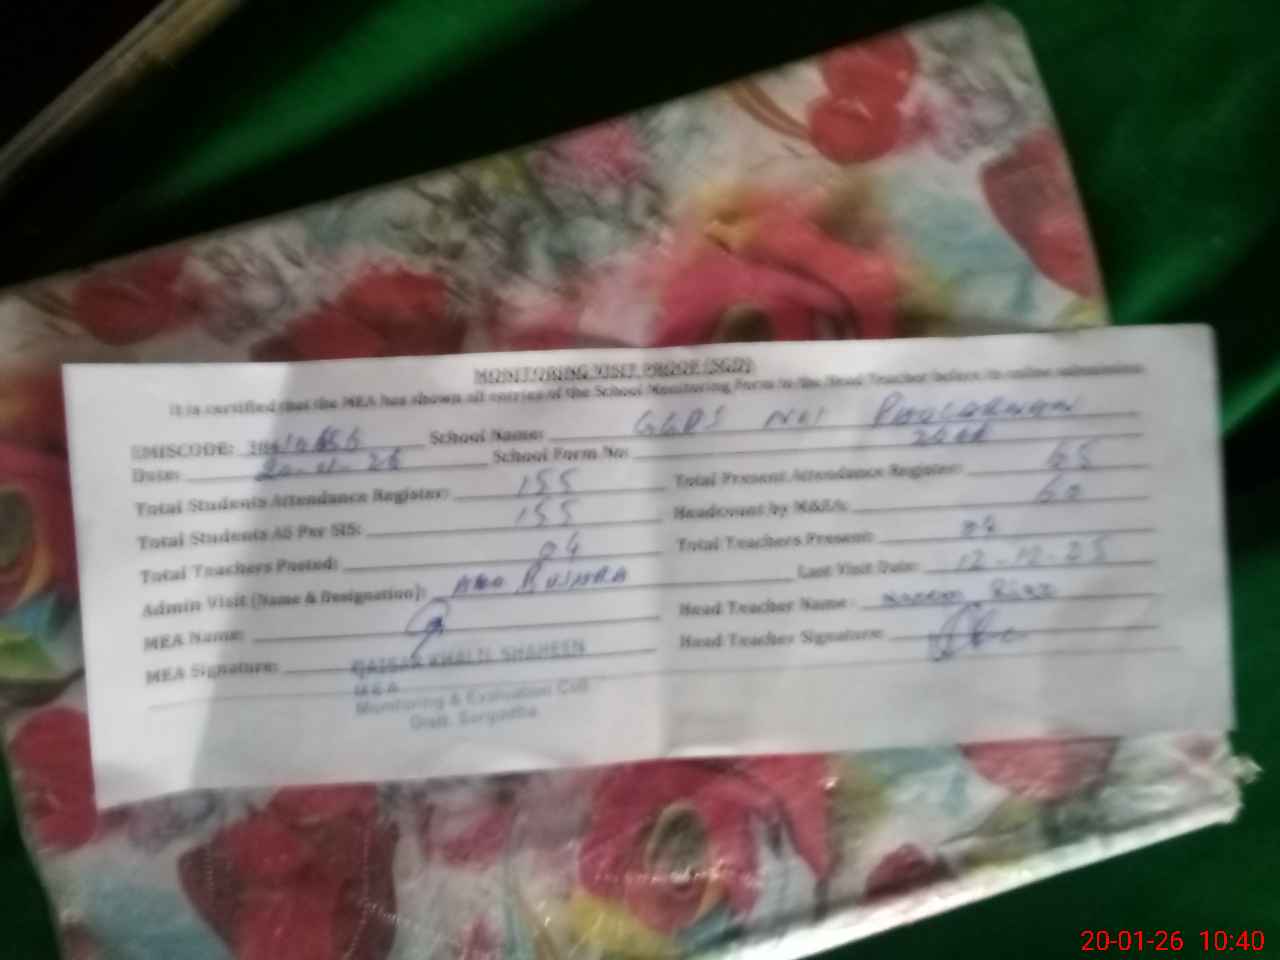 MONITORING VISIT PROOF (SGD)
It is certified that the MEA has shown all entries of the School Monitoring Form to the Head Teacher before its online submission
EMISCODE: School Name: GGPS No1
Date: 20-01-26 School Form No:
Total Students Attendance Register: 155 Total Present Attendance Register: 65
Total Students AS Per SIS: 155 Headcount by M&EA: 60
Total Teachers Posted: 04 Total Teachers Present: 04
Admin Visit (Name & Designation): Last Visit Date: 12-12-25
MEA Name: Head Teacher Name:
MEA Signature: Head Teacher Signature:
QAISAR KHALIL SHAHEEN
MEA
Monitoring & Evaluation Cell
Distt. Sargodha
20-01-26 10:40